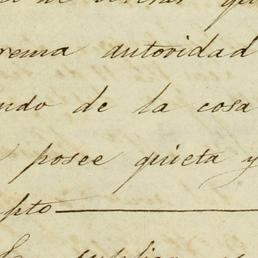 rema autoridad
ndo de la cosa
posee quieta y
pto